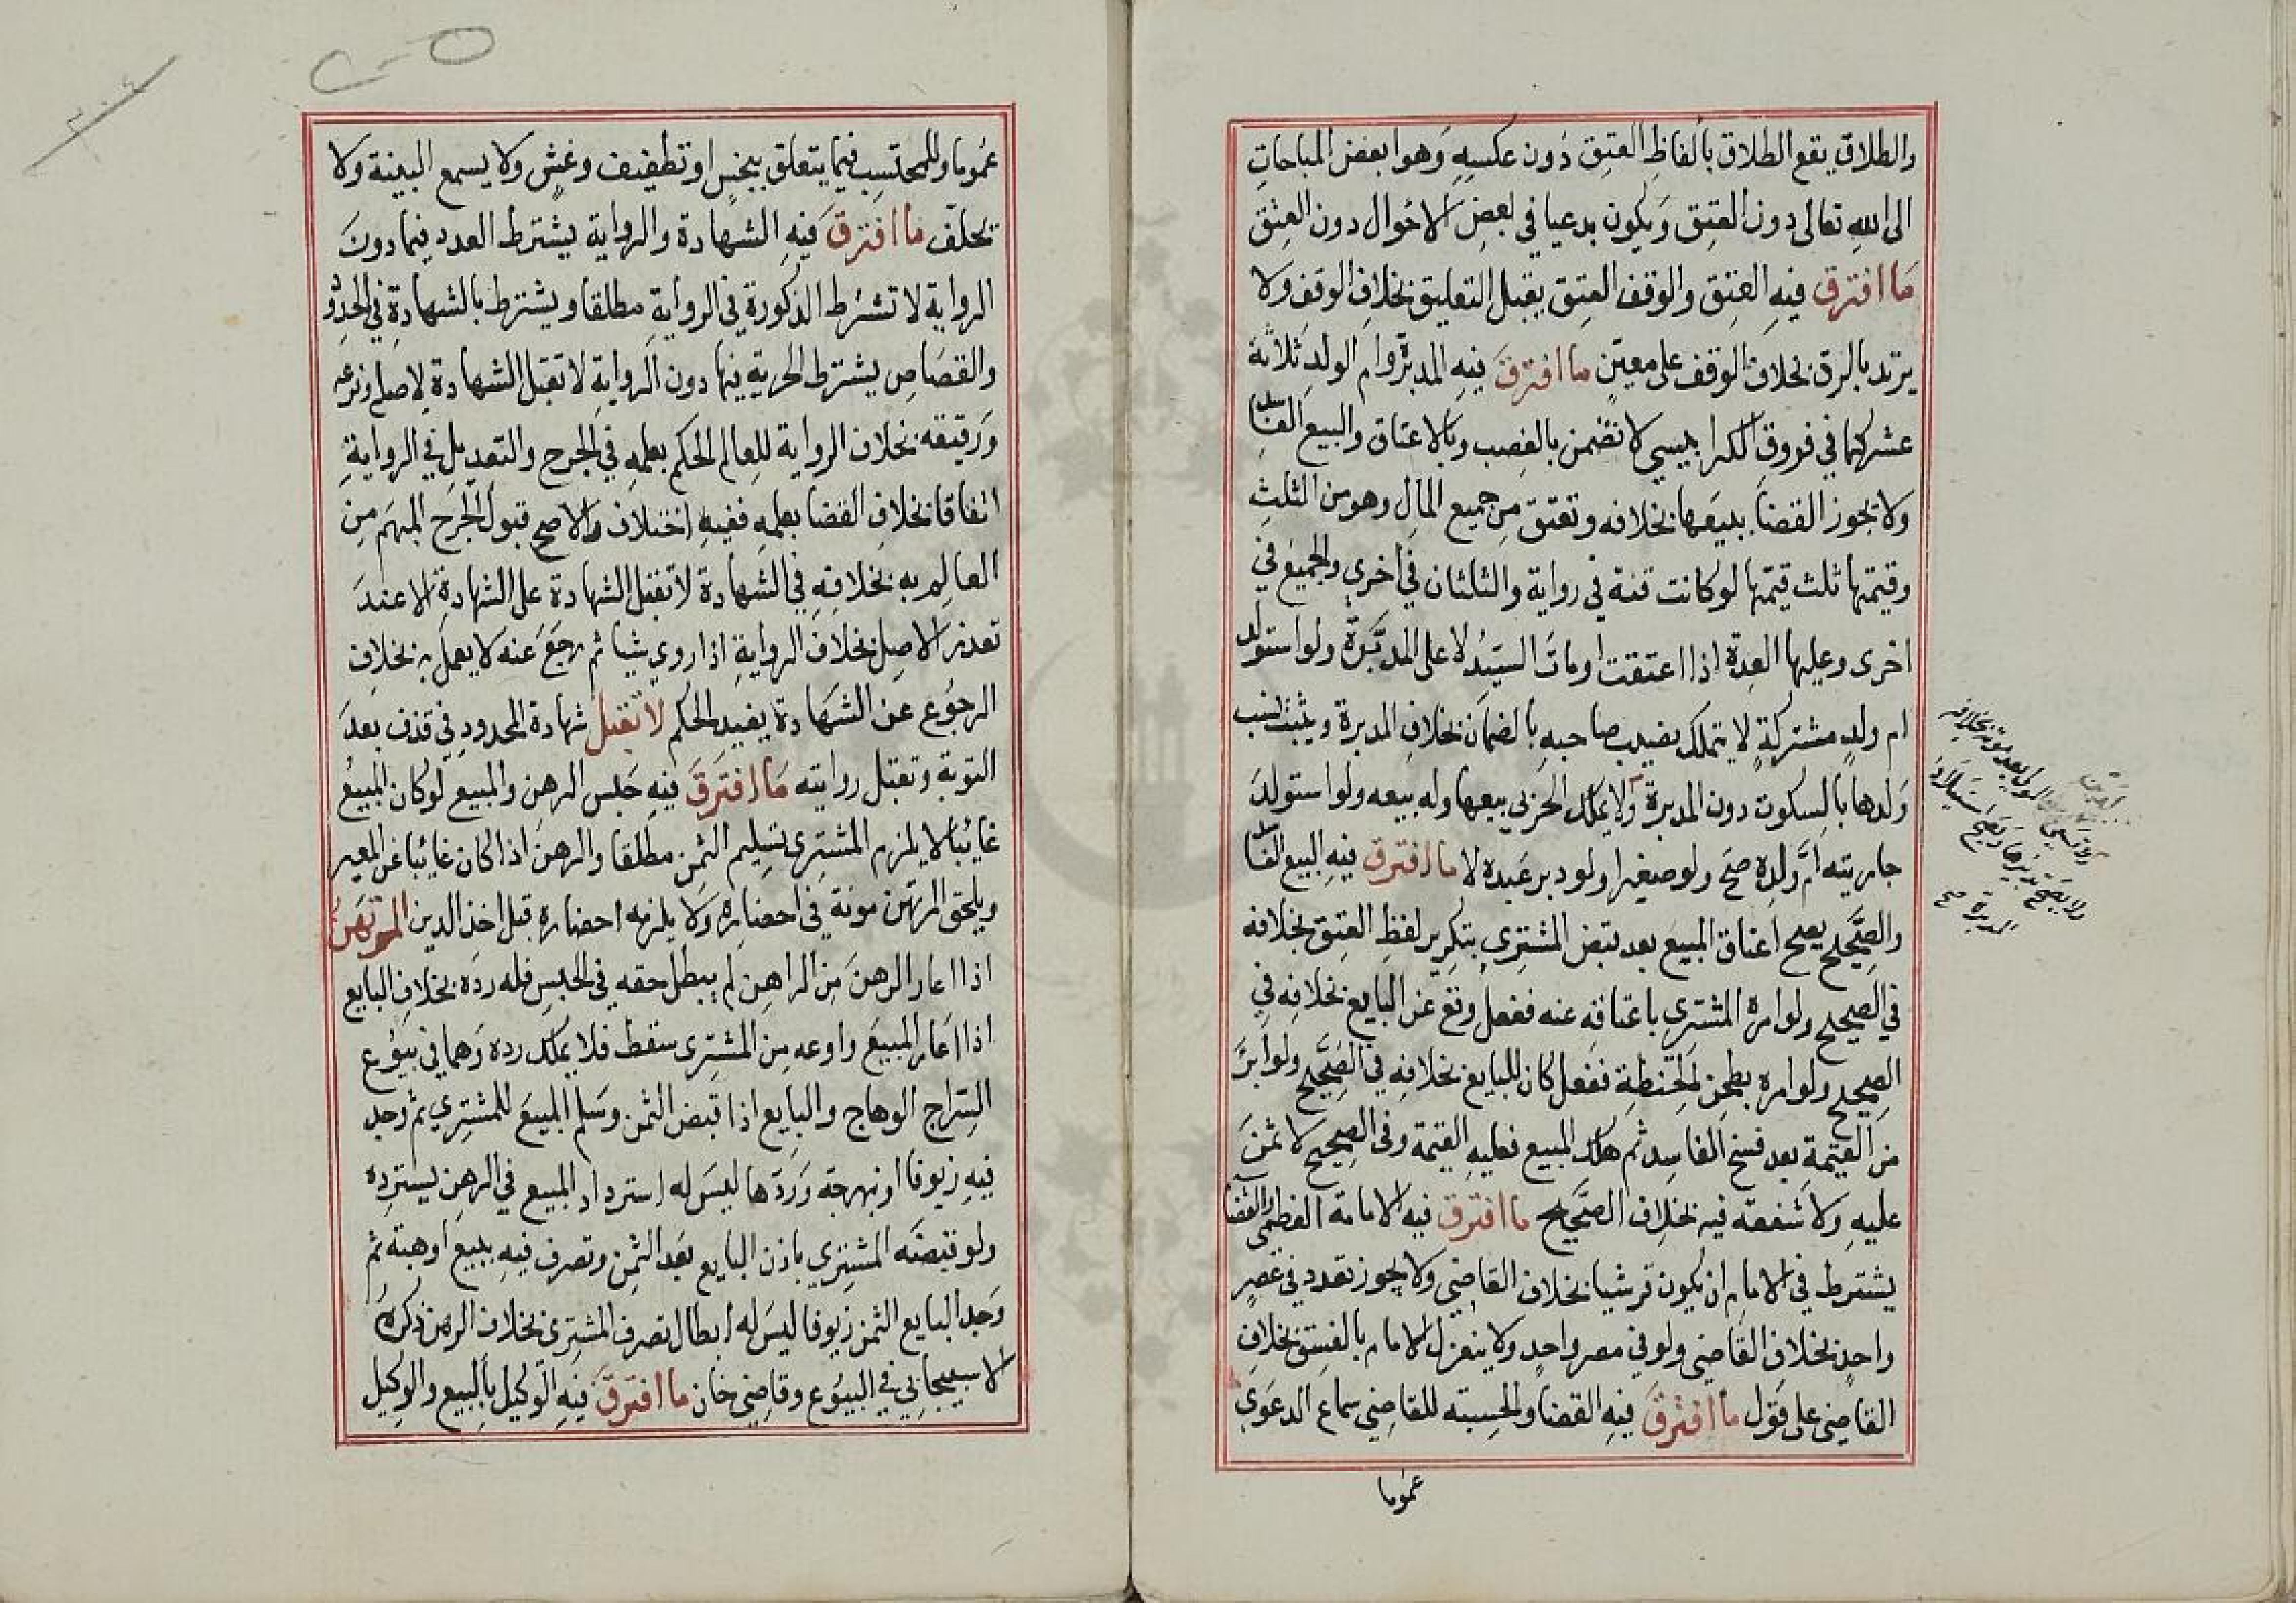 والطلاق يقع الطلاق بالفاظ العتق دون عكسه وهو ابغض المباحات
الى الله تعالى دون العتق ويكون بدعيا في بعض الاحوال دون العتق
ما افترق فيه العتق والوقف العتق يقبل التعليق بخلاف الوقف ولا
يرتد بالرد بخلاف الوقف على معين ما افترق فيه المدبرة وام الولد ثلاثة
عشر كما في فروق الكرابيسي لا تضمن بالغصب وبالاعتاق والبيع الفاسد
ولا يجوز القضا ببيعها بخلافه وتعتق من جميع المال وهو من الثلث
وقيمتها ثلث قيمتها لو كانت قنة في رواية والثلثان في اخرى والجميع في
اخرى وعليها العدة اذا اعتقت او مات السيد لا على المدبرة ولو استولد
ام ولد مشتركة لا يتملك نصيب صاحبه بالضمان بخلاف المدبرة ويثبت نسب
ولدها بالسكوت دون المدبرة ولا يملك الحربي بيعها وله بيعه ولو استولد
جارية ام ولده صح ولو صغيرا ولو دبر عبده لا ما افترق فيه البيع الفاسد
والصحيح يصح اعتاق المبيع بعد قبض المشتري بتكرير لفظ العتق بخلافه
في الصحيح ولو امره المشتري باعتاقه عنه ففعل وقع عن البايع بخلافه في
الصحيح ولو امره بطحن الحنطة ففعل كان للبايع بخلافه في الصحيح ولو ابرا
من القيمة بعد فسخ الفاسد ثم هلك المبيع فعليه القيمة وفي الصحيح لا ثمن
عليه ولا شفعة فيه بخلاف الصحيح ما افترق فيه الامامة العظمى والقضا
يشترط في الامام ان يكون قرشيا بخلاف القاضي ولا يجوز تعدد في عصر
واحد بخلاف القاضي ولو في مصر واحد ولا ينعزل الامام بالفسق بخلاف
القاضي على قول ما افترق فيه القضا والحسبة للقاضي سماع الدعوي
عموما
ولا يصح تدبيرها ويصح استيلاد
المدبرة صح
عموما وللمحتسب فيما يتعلق ببخس او تطفيف وغش ولا يسمع البينة ولا
يحلف ما افترق فيه الشهادة والرواية يشترط العدد فيها دون
الرواية لا تشترط الذكورة في الرواية مطلقا ويشترط بالشهادة في الحدود
والقصاص يشترط الحرية فيها دون الرواية لا تقبل الشهادة لاصله وفرعه
ورقيقه بخلاف الرواية للعالم الحكم بعلمه في الجرح والتعديل في الرواية
اتفاقا بخلاف القضا بعلمه ففيه اختلاف والاصح قبول الجرح المبهم من
العالم به بخلافه في الشهادة لا تقبل الشهادة على الشهادة الا عند
تعذر الاصل بخلاف الرواية اذا روي شيا ثم رجع عنه لا يعمل به بخلاف
الرجوع عن الشهادة بغيد الحكم لا تقبل شهادة المحدود في قذف بعد
التوبة وتقبل روايته ما افترق فيه حبس الرهن والمبيع لو كان المبيع
غايبا لا يلزم المشتري تسليم الثمن مطلقا والرهن اذا كان غايبا عن المصر
ويلحق المرتهن مونة في احضاره ولا يلزمه احضاره قبل اخذ الدين المرتهن
اذا اعار الرهن من الراهن لم يبطل حقه في الحبس فله رده بخلاف البايع
اذا اعار المبيع واوعه من المشتري سقط فلا يملك رده وهما في بيوع
السراج الوهاج والبايع اذا قبض الثمن وسلم المبيع للمشتري ثم وجد
فيه زيوفا او نبهرجة وردها ليس له استرداد المبيع في الرهن يسترده
ولو قبضه المشتري باذن البايع بعد الثمن وتصرف فيه ببيع او هبة ثم
وجد البايع الثمن زيوفا ليس له ابطال تصرف المشتري بخلاف الرهن ذكره
الاسبيجابي في البيوع وقاضي خان ما افترق فيه الوكيل بالبيع والوكيل